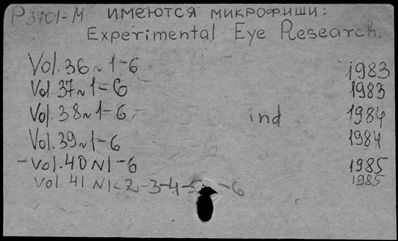 P3701-M имеются микрофиши:
Experimental Eye Research.
Vol. 36 N 1-6 1983
Vol. 37 N 1-6 1983
Vol. 38 N 1-6 ind 1984
Vol. 39 N 1-6 1984
-Vol. 40 N 1-6 1985
Vol. 41 N 1-2-3-4-5-6 1985